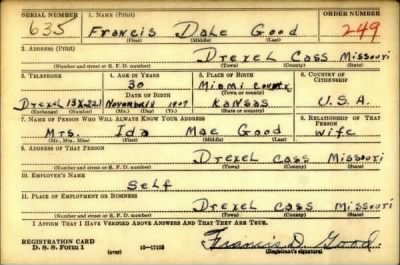 SERIAL NUMBER 1. NAME (Print) ORDER NUMBER
635 Francis Dale Good 249
(First) (Middle) (Last)
2. ADDRESS (Print)
Drexel Cass Missouri
(Number and street or R. F. D. number) (Town) (County) (State)
3. TELEPHONE 4. AGE IN YEARS 5. PLACE OF BIRTH 6. COUNTRY OF CITIZENSHIP
30 Miami County
DATE OF BIRTH (Town or county)
Drexel November 1909 Kansas U.S.A.
(Exchange) (Number) (Mo.) (Day) (Yr.) (State or country)
7. NAME OF PERSON WHO WILL ALWAYS KNOW YOUR ADDRESS 8. RELATIONSHIP OF THAT PERSON
Mrs. Ida Mae Good Wife
(Mr., Mrs., Miss) (First) (Middle) (Last)
9. ADDRESS OF THAT PERSON
Drexel Cass Missouri
(Number and street or R. F. D. number) (Town) (County) (State)
10. EMPLOYER'S NAME
Self
11. PLACE OF EMPLOYMENT OR BUSINESS
Drexel Cass Missouri
(Number and street or R. F. D. number) (Town) (County) (State)
I AFFIRM THAT I HAVE VERIFIED ABOVE ANSWERS AND THAT THEY ARE TRUE.
REGISTRATION CARD Francis D. Good
D. S. S. FORM 1 (over) 16—17105 (Registrant's signature)